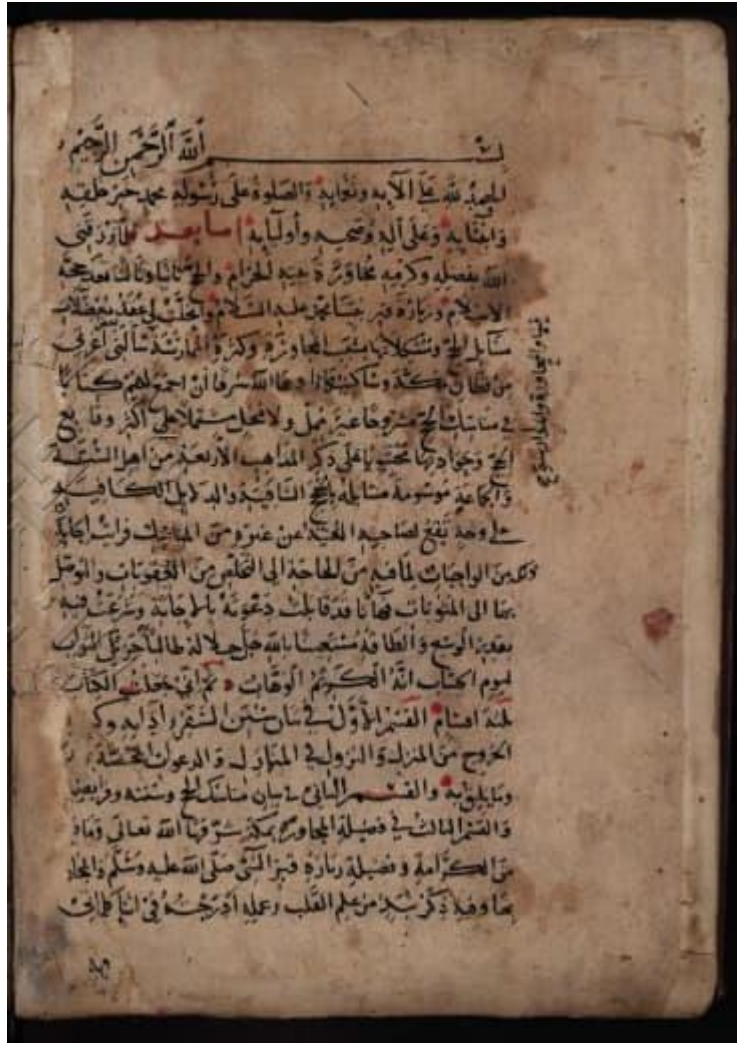 بسم الله الرحمن الرحيم
الحمد لله على آلائه ونعمائه والصلوة على رسوله محمد خير خلقه
وعلى آله وصحبه وأوليائه اما بعد فلما رزقني
الله بفضله وكرمه مجاورة بيته الحرام والحج ثانيا وثالثا بعد حجة
الاسلام وزيارة قبر نبينا محمد عليه السلام وانحلت لي عقد معضلات
مسائل الحج ومشكلاتها المجاورة وكثرة الممارسة سألني
من سكان مكة وساكنيها زادها الله شرفا أن اجمع لهم كتابا
في مناسك الحج مشروحا غير ممل ولا مخل مشتملا على أكثر وقايع
الحج وحوادثها محتويا على ذكر المذاهب الأربعة من اهل السنة
والجماعة موسومة مسايله بالحجج الشافية والدلايل الكافية
على وجه يقع لصاحبه الغنية عن غيره من المناسك فرأيت إجابة
ذلك من الواجبات لما فيه من الحاجة الى التخلص من العقوبات والتوصل
بها الى المثوبات فها أنا قد قابلت دعوته بالإجابة وشرعت فيه
بقدر الوسع والطاقة مستعينا بالله جل جلاله طالبا
ليوم الحساب انه الكريم الوهاب ثم اني جعلت الكتاب
ثلثة اقسام القسم الأول في بيان سنن السفر وآدابه وكذا
الخروج من المنزل والنزول في المنازل والدعوات المختصة
وما يليق به والقسم الثاني في بيان مناسك الحج وسننه وفرايضه
والقسم الثالث في فضيلة المجاورة بمكة شرفها الله تعالى وما فيها
من الكرامة وفضيلة زيارة قبر النبي صلى الله عليه وسلم
بها وفيه ذكر نبذ من علم القلب وعمله أدرجته في اثنا